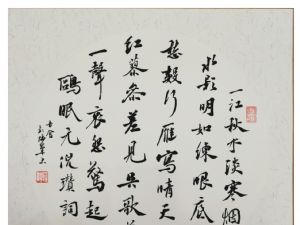 一江秋水淡寒烟
水影明如練眼底
愁數行雁寫晴天
紅蓼參差見吴歌
一聲哀怨驚起
鷗眠元倪瓚詞